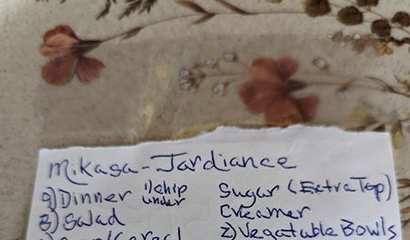 Mikasa - Jardiance
9) Dinner 1/chip under Sugar (Extra Top)
8) Salad Creamer
2) Vegatable Bowls